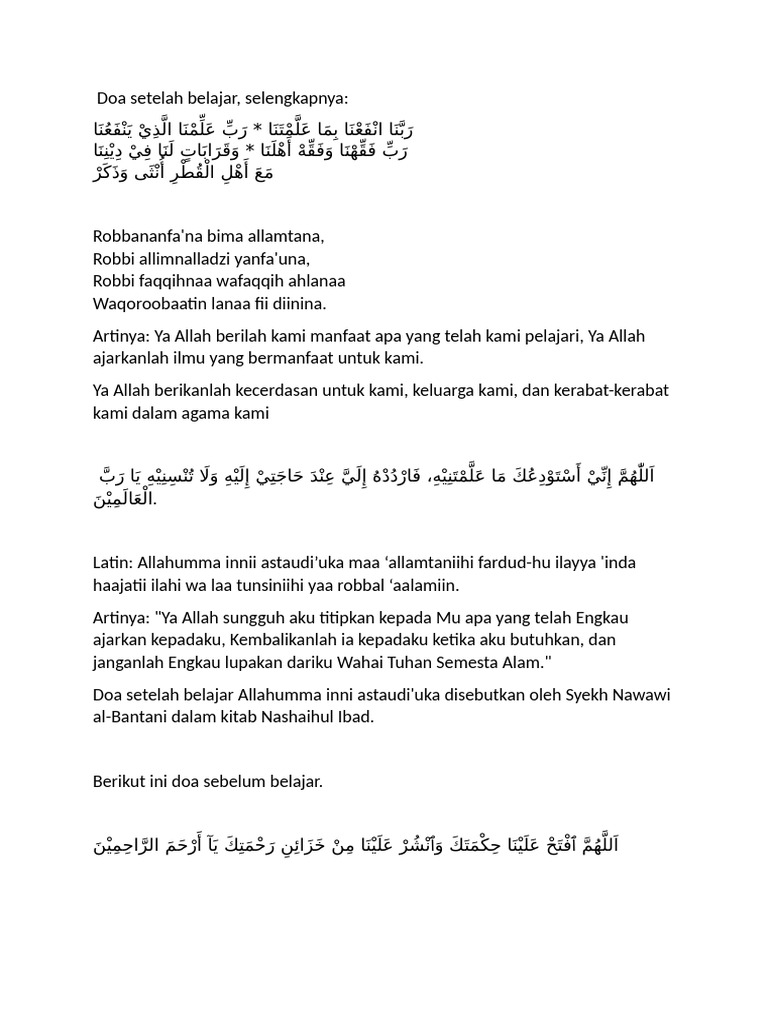 Doa setelah belajar, selengkapnya:
رَبَّنَا انْفَعْنَا بِمَا عَلَّمْتَنَا * رَبِّ عَلِّمْنَا الَّذِيْ يَنْفَعُنَا
رَبِّ فَقِّهْنَا وَفَقِّهْ أَهْلَنَا * وَقَرَابَاتٍ لَنَا فِيْ دِيْنِنَا
مَعَ أَهْلِ الْقُطْرِ أُنْثَى وَذَكَرْ
Robbananfa'na bima allamtana,
Robbi allimnalladzi yanfa'una,
Robbi faqqihnaa wafaqqih ahlanaa
Waqoroobaatin lanaa fii diinina.
Artinya: Ya Allah berilah kami manfaat apa yang telah kami pelajari, Ya Allah
ajarkanlah ilmu yang bermanfaat untuk kami.
Ya Allah berikanlah kecerdasan untuk kami, keluarga kami, dan kerabat-kerabat
kami dalam agama kami
اَللّٰهُمَّ إِنِّيْ أَسْتَوْدِعُكَ مَا عَلَّمْتَنِيْهِ، فَارْدُدْهُ إِلَيَّ عِنْدَ حَاجَتِيْ إِلَيْهِ وَلَا تُنْسِنِيْهِ يَا رَبَّ
الْعَالَمِيْنَ.
Latin: Allahumma innii astaudi’uka maa ‘allamtaniihi fardud-hu ilayya 'inda
haajatii ilahi wa laa tunsiniihi yaa robbal ‘aalamiin.
Artinya: "Ya Allah sungguh aku titipkan kepada Mu apa yang telah Engkau
ajarkan kepadaku, Kembalikanlah ia kepadaku ketika aku butuhkan, dan
janganlah Engkau lupakan dariku Wahai Tuhan Semesta Alam."
Doa setelah belajar Allahumma inni astaudi'uka disebutkan oleh Syekh Nawawi
al-Bantani dalam kitab Nashaihul Ibad.
Berikut ini doa sebelum belajar.
اَللَّهُمَّ ٱفْتَحْ عَلَيْنَا حِكْمَتَكَ وَٱنْشُرْ عَلَيْنَا مِنْ خَزَائِنِ رَحْمَتِكَ يَآ أَرْحَمَ الرَّاحِمِيْنَ